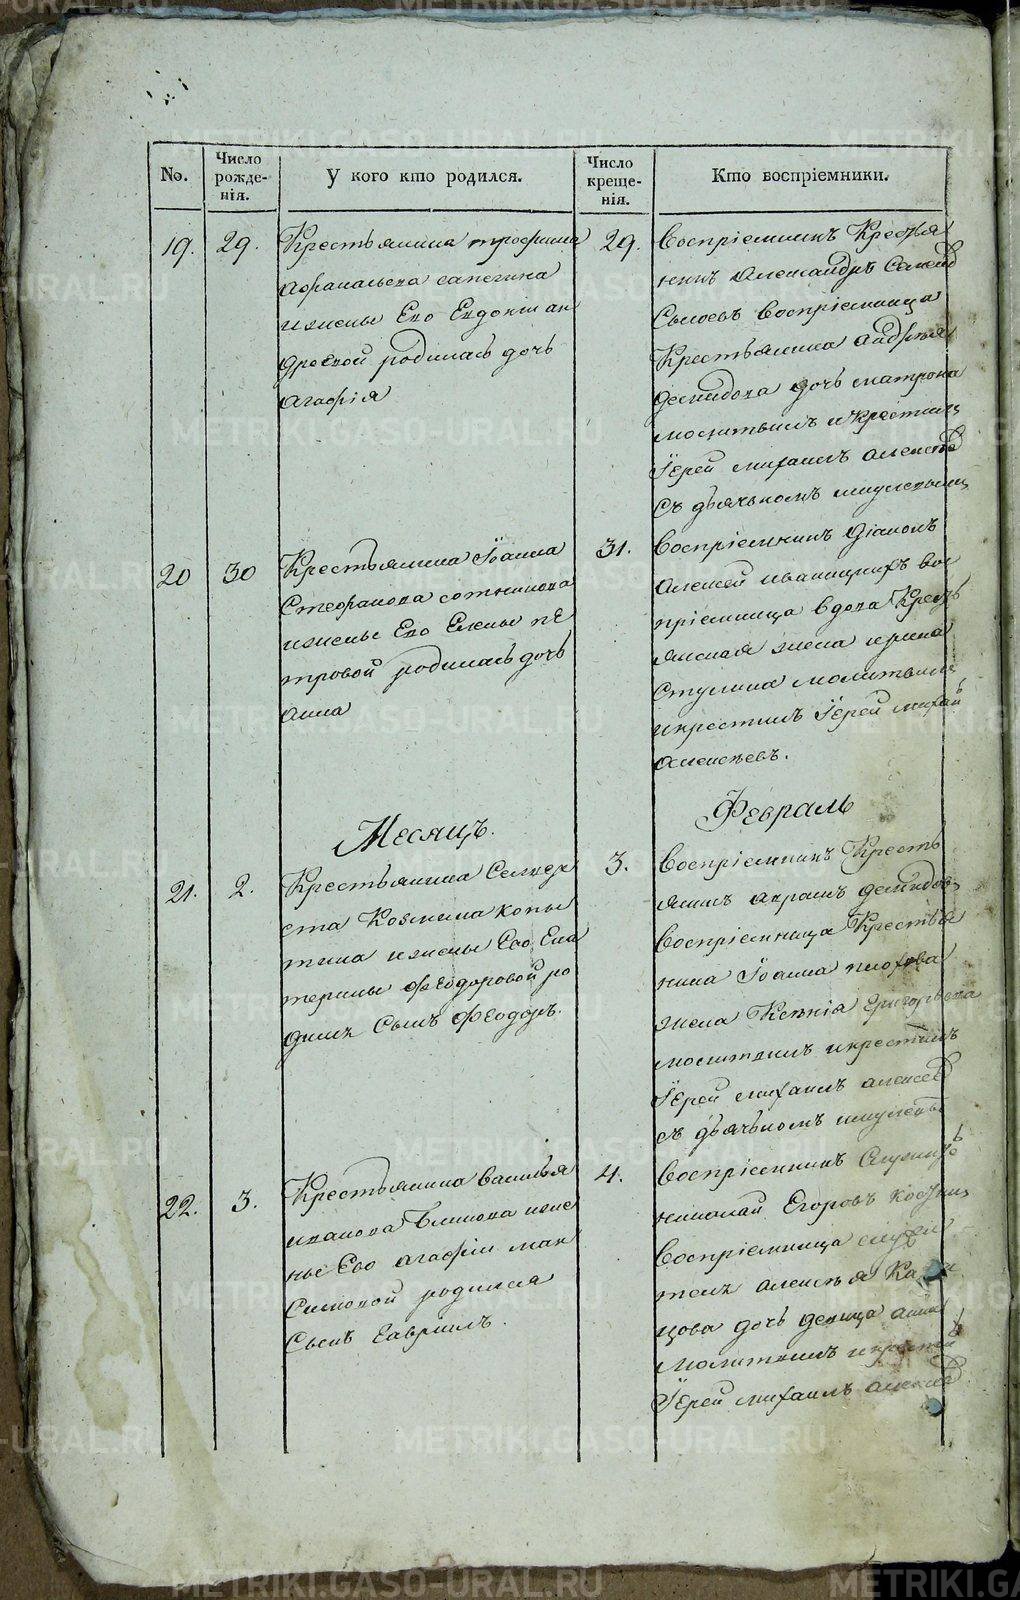 No.
Число рожденія.
У кого кто родился.
Число крещенія.
Кто воспріемники.
19.
29.
Крестьянина трофима
афанасьева сапегина
ижены Его Евдокіи ан
дреевой родилась дочь
агафія
29.
Воспріемникъ Крестья
нинъ александръ
Воспріемница
Крестьянина андрея
демидова дочь матрона
молитвилъ икрестилъ
Іерей михаилъ алексеев
Съ дьячькомъ
20
30
Крестьянина Іоанна
Стефанова сотникова
ижены Его Елены пе
тровой родилась дочь
анна
31.
Воспріемникъ діаконъ
алексей иваницкихъ вос
пріемница вдова Крестьянская жена ирина
Стулина молитвилъ
икрестилъ Іерей михаилъ
алексеевъ.
Месяцъ.
Февраль
21.
2.
Крестьянина Селивер
ста Козмина копы
тина ижены Его Ека
терины Феодоровой ро
дился Сынъ Феодоръ.
3.
Воспріемникъ Кресть
янинъ аврамъ демидовъ
Воспріемница Крестья
нина Іоанна плохова
жена Ксенія Григорьева
молитвилъ икрестилъ
Іерей михаилъ алексеев
съ дьячькомъ
22.
3.
Крестьянина василья
иванова Блинова иже
ны Его агафіи мак
симовой родился
Сынъ Гавріилъ.
4.
Воспріемникъ
николай Егоровъ
Воспріемница служи
теля алексея
цова дочь девица анна
Молитвилъ икрестилъ
Іерей михаилъ алексеев
METRIKI.GASO-URAL.RU